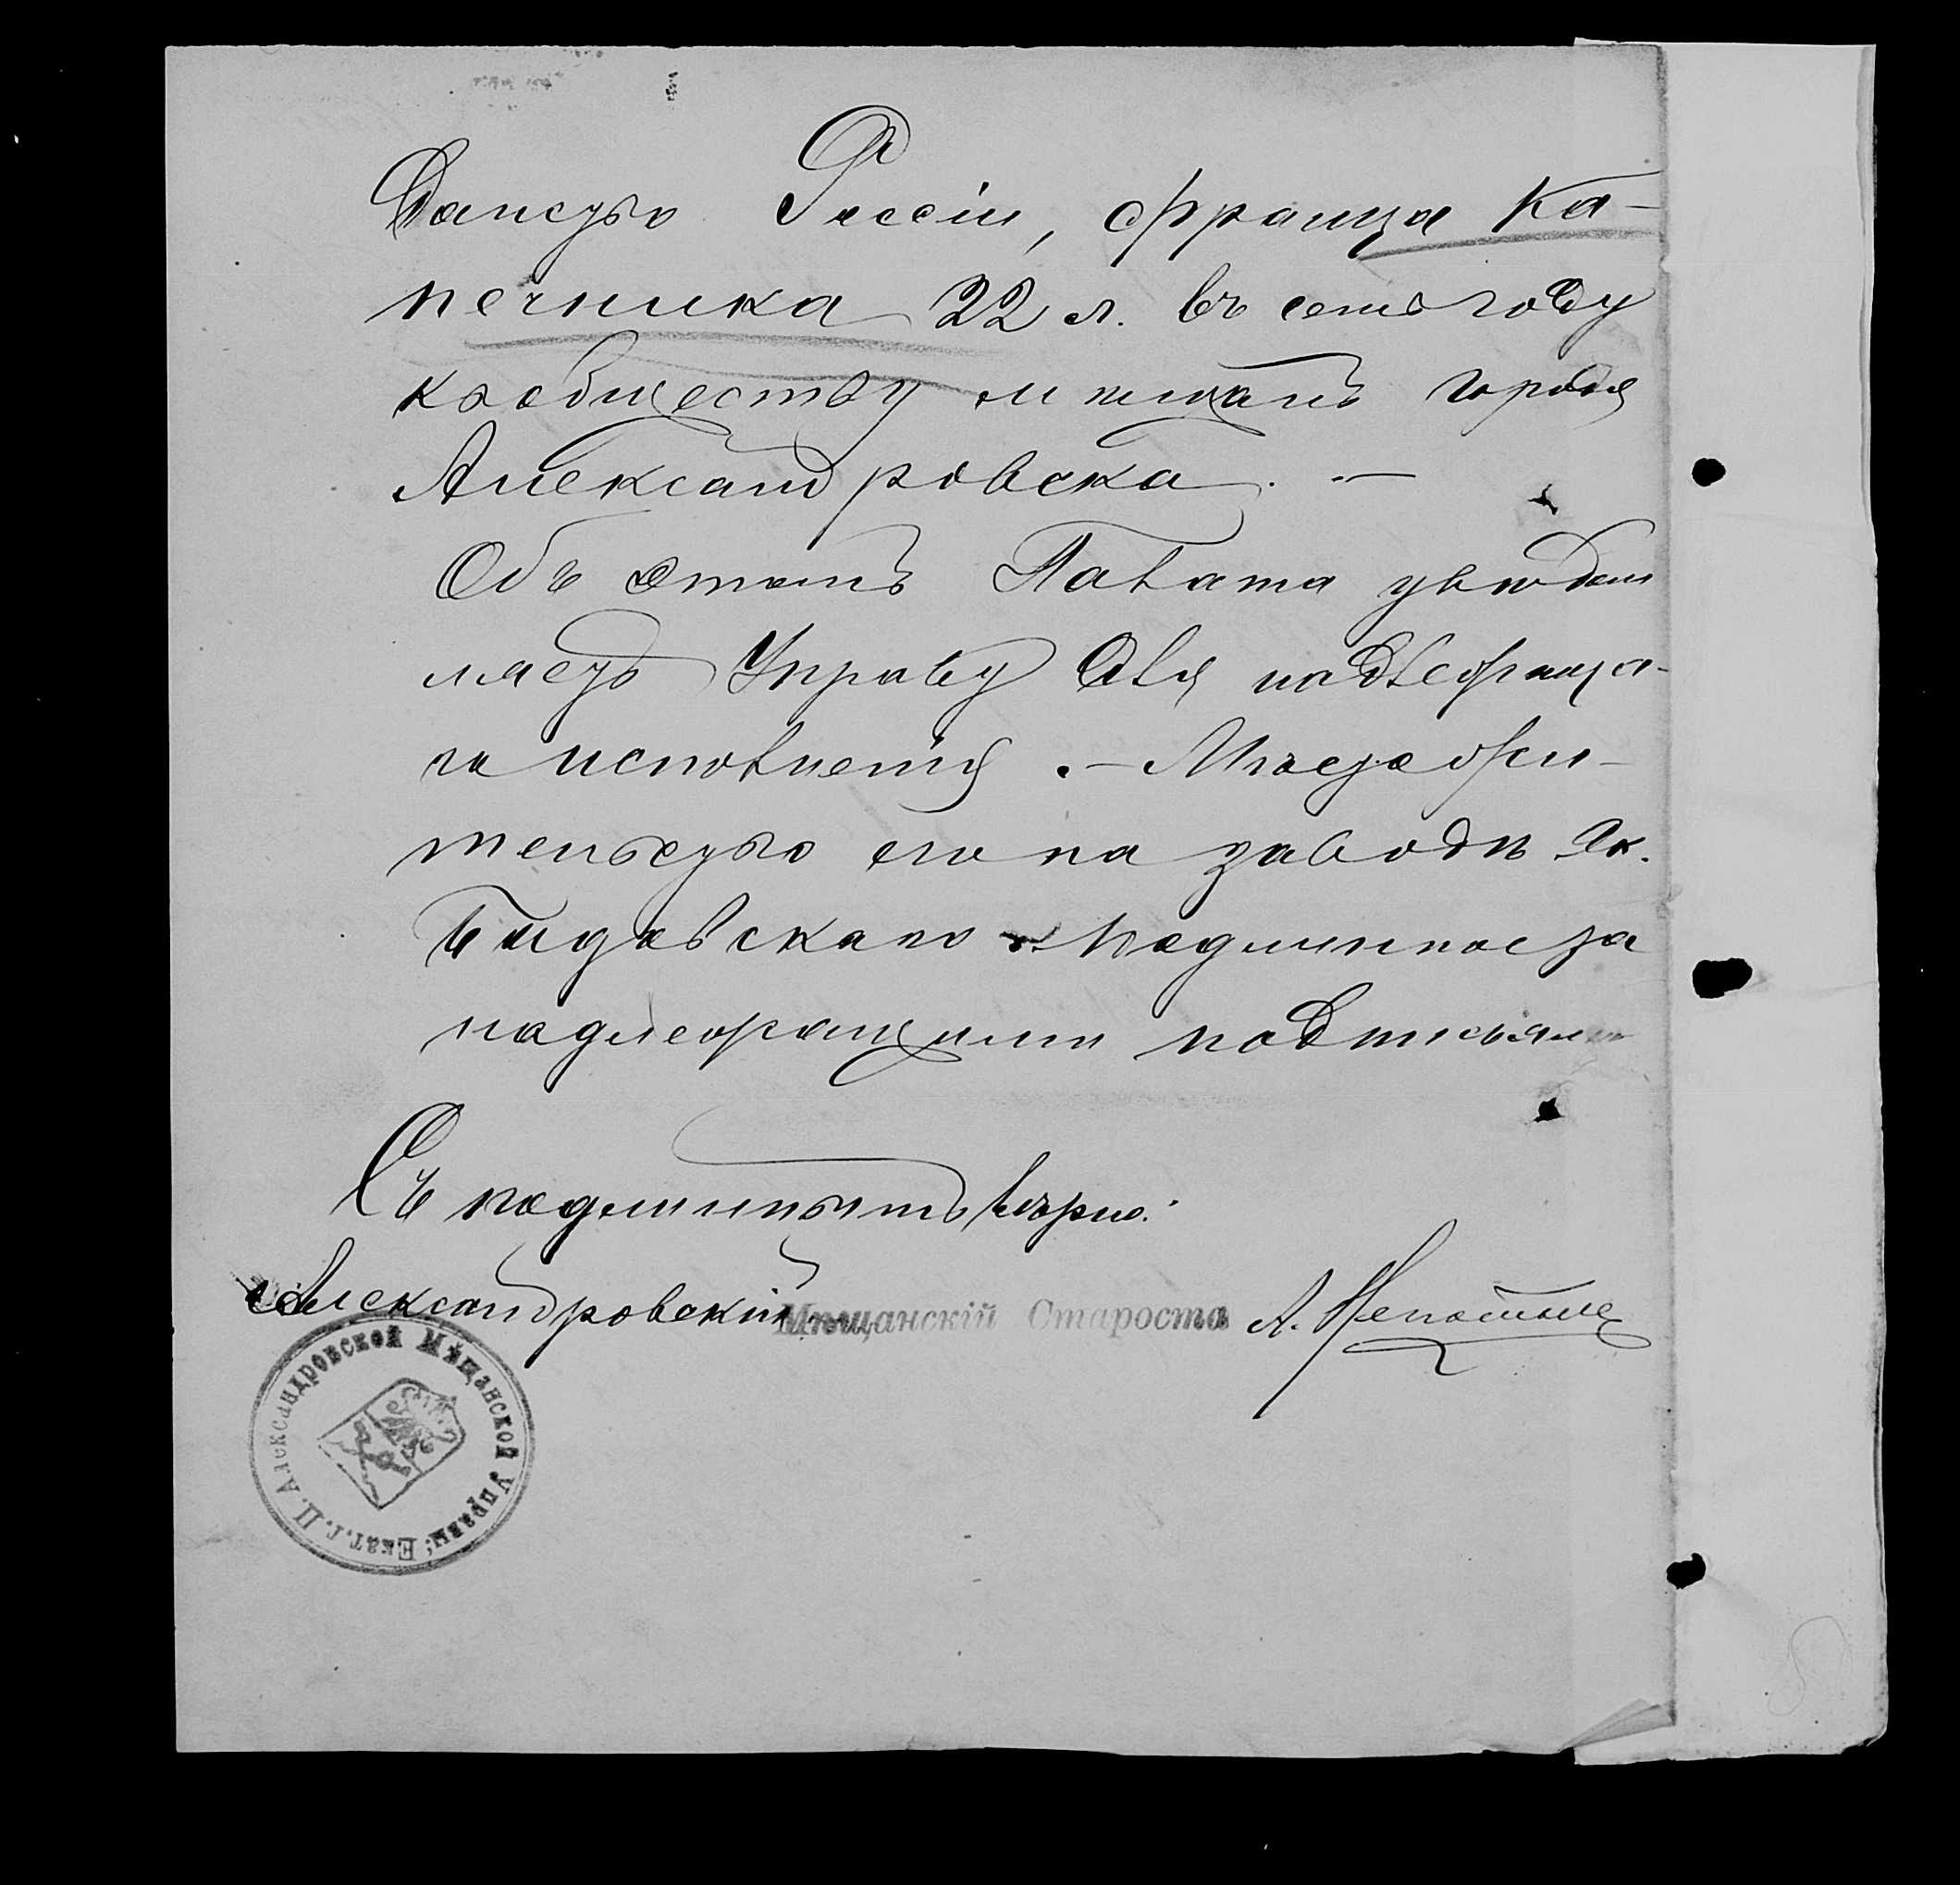 Россіи, Франца Ка-
печника 22 л. въ семъ году
къ обществу мѣщанъ города
Александровска. —
Объ этомъ Палата увѣдом
ляетъ Управу для надлежаща-
го исполненія. — Мѣсто жи-
тельство его на заводѣ Як.
подлинное за
надлежащими подписями
Съ подлиннымъ вѣрно:
Александровскій Мѣщанскій Староста А.
Александровской Мѣщанской Управы; Екат. г. П.